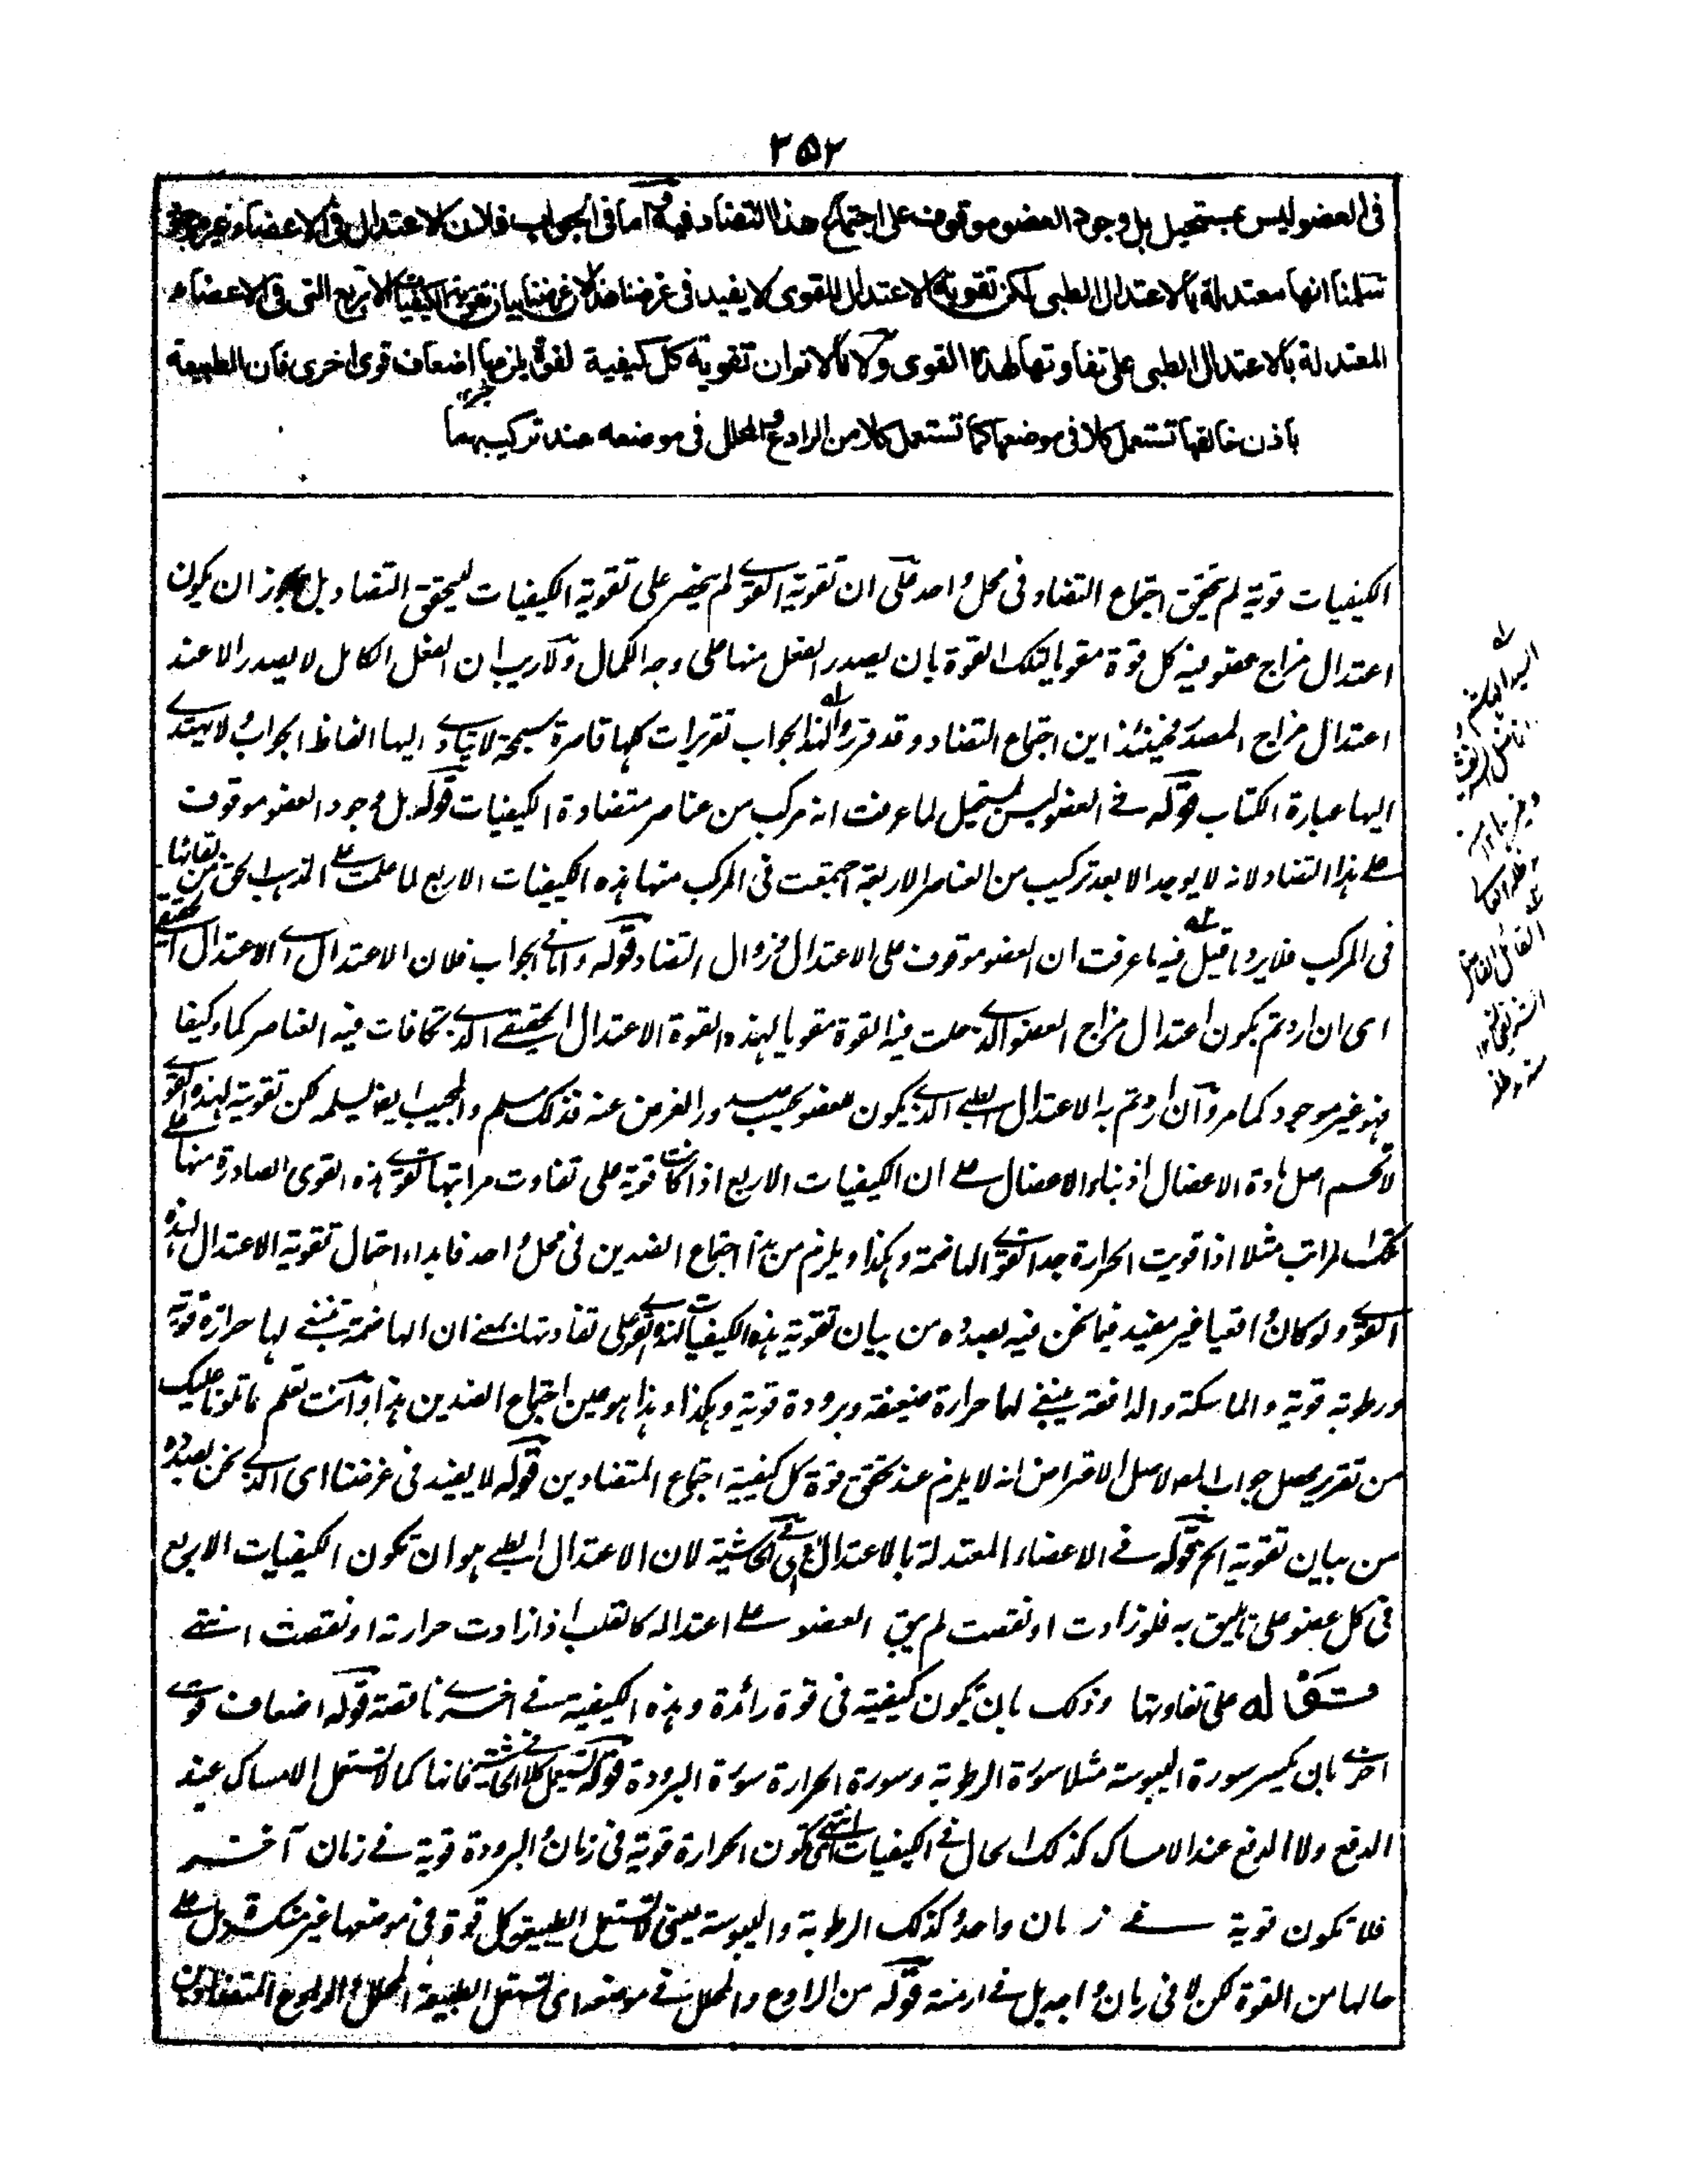 ٢٥٢
فى العضو ليس بمستحيل بل وجود العضو موقوف على اجتماع هذا التضاد فيه واما فى الجواب فلان الاعتدال فى الاعضاء غير موجود
سلمنا انها معتدلة بالاعتدال الطبى لكن تقوية الاعتدال للقوى لا يفيد فى غرضنا هذا لان غرضنا بيان تقوية الكيفيات الاربع التى فى الاعضاء
المعتدلة بالاعتدال الطبى على تفاوتها لهذه القوى ولا ان تقوية كل كيفية لقوة يلزمها اضعاف قوى اخرى فان الطبيعة
باذن خالقها تستعمل كلا فى موضعها كما تستعمل كلا من الرادع والمحلل فى موضعه عند تركيبهما
الكيفيات قوية لم يتحقق اجتماع التضاد فى محل واحد على ان تقوية القوى لم ينحصر على تقوية الكيفيات ليتحقق التضاد بل يجوز ان يكون
اعتدال مزاج عضو فيه كل قوة مقويا لتلك القوة بان يصدر الفعل منها على وجه الكمال ولا ريب ان الفعل الكامل لا يصدر الا عند
اعتدال مزاج المصدر فحينئذ اين اجتماع التضاد وقد قرروا لهذا الجواب تقريرات كلها قاصرة سمجة لا يتادى اليها الفاظ الجواب ولا يهتدى
اليها عبارة الكتاب قوله فى العضو ليس بمستحيل لما عرفت انه مركب من عناصر متضادة الكيفيات قوله بل وجود العضو موقوف
على هذا التضاد لانه لا يوجد الا بعد تركيب من العناصر الاربعة اجتمعت فى المركب منها هذه الكيفيات الاربع لما علمت على المذهب الحق من بقائها
فى المركب فلا يرد ما قيل فيه ما عرفت ان العضو موقوف على الاعتدال وزوال التضاد قوله واما فى الجواب فلان الاعتدال اى الاعتدال الحقيقى
اى ان اردتم بكون اعتدال مزاج العضو الذى حلت فيه القوة مقويا لهذه القوة الاعتدال الحقيقى الذى تكافات فيه العناصر كما وكيفا
فهو غير موجود كما مر وان اردتم به الاعتدال الطبى الذى يكون للعضو بحسب صدور الغرض عنه فذلك مسلم والمجيب ايضا يسلمه لكن تقوية لهذه القوى
لا تحسم اصل مادة الاعضال اذ بناء الاعضال على ان الكيفيات الاربع اذا كانت قوية على تفاوت مراتبها تقوى هذه القوى الصادرة منها على
تلك المراتب مثلا اذا قويت الحرارة جدا تقوى الهاضمة وهكذا ويلزم من هذا اجتماع الضدين فى محل واحد فابداء احتمال تقوية الاعتدال لهذه
القوى ولو كان واقعيا غير مفيد فيما نحن فيه بصدده من بيان تقوية هذه الكيفيات لهذه القوى على تفاوتها بمعنى ان الهاضمة ينبغى لها حرارة قوية
ورطوبة قوية والماسكة والدافعة ينبغى لهما حرارة ضعيفة وبرودة قوية وهكذا وهذا هو عين اجتماع الضدين هذا وانت تعلم ما تلونا عليك
من تقرير محصل جواب لاصل الاعتراض انه لا يلزم عند تحقق قوة كل كيفية اجتماع المتضادين قوله لا يفيد فى غرضنا اى الذى نحن بصدده
من بيان تقوية الخ قوله فى الاعضاء المعتدلة بالاعتدال الطبى فى الحاشية لان الاعتدال الطبى هو ان تكون الكيفيات الاربع
فى كل عضو على ما يليق به فلو زادت او نقصت لم يبق العضو على اعتداله كالقلب اذا زادت حرارته او نقصت انتهى
قوله على تفاوتها وذلك بان يكون كيفية فى قوة زائدة وهذه الكيفية فى اخرى ناقصة قوله اضعاف قوى
اخرى بان يكسر سورة اليبوسة مثلا سورة الرطوبة وسورة الحرارة سورة البرودة قوله تستعمل كلا فى الحاشية فانها كما لا تستعمل الامساك عند
الدفع ولا الدفع عند الامساك كذلك الحال فى الكيفيات انتهى فتكون الحرارة قوية فى زمان والبرودة قوية فى زمان آخر
فلا تكون قوية فى زمان واحد وكذلك الرطوبة واليبوسة يعنى تستعمل الطبيعة كل قوة فى موضعها غير منكسرة بل على
حالها من القوة لكن لا فى زمان واحد بل فى ازمنة قوله من الرادع والمحلل فى موضعه اى تستعمل الطبيعة المحلل والرادع المتضادين